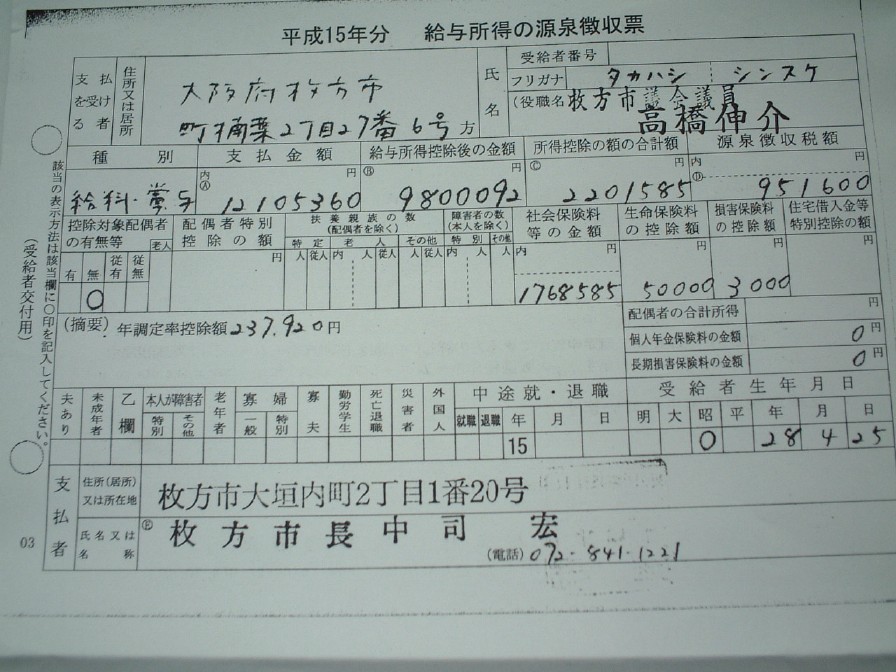 平成15年分 給与所得の源泉徴収票
支払を受ける者
住所又は居所
大阪府枚方市
町楠葉2丁目27番6号方
氏名
受給者番号
フリガナ タカハシ シンスケ
(役職名) 枚方市議会議員
高橋伸介
種別 支払金額 給与所得控除後の金額 所得控除の額の合計額 源泉徴収税額
給料・賞与 内 Ⓐ 12105360 円 Ⓑ 9800092 円 Ⓒ 2201585 円 内 Ⓓ 951600 円
控除対象配偶者の有無等 老人
有 無 従有 従無
0
配偶者特別控除の額 円
扶養親族の数(配偶者を除く)
特定 老人 その他
人 従人 内 人 従人 人 従人
障害者の数(本人を除く)
特別 その他
内 人 人
社会保険料等の金額 内 円 1768585
生命保険料の控除額 円 50000
損害保険料の控除額 円 3000
住宅借入金等特別控除の額 円
(摘要) 年調定率控除額 237.920円
配偶者の合計所得 円
個人年金保険料の金額 0 円
長期損害保険料の金額 0 円
夫あり 未成年者 乙欄 本人が障害者 特別 その他 老年者 寡婦 一般 特別 寡夫 勤労学生 死亡退職 災害者 外国人
中途就・退職
就職 退職 年 月 日
15
受給者生年月日
明 大 昭 平 年 月 日
0 28 4 25
支払者
住所(居所)又は所在地
枚方市大垣内町2丁目1番20号
氏名又は名称
枚方市長中司 宏
(電話) 072-841-1221
03
該当の表示方法は該当欄に○印を記入してください。
(受給者交付用)